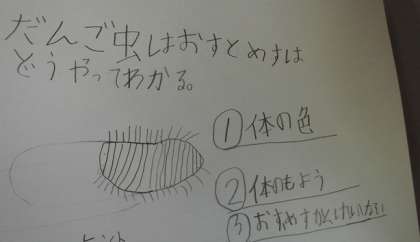 だんご虫はおすとめすは
どうやってわかる。
①体の色
②体のもよう
③おすめすかんけいない
ヒント